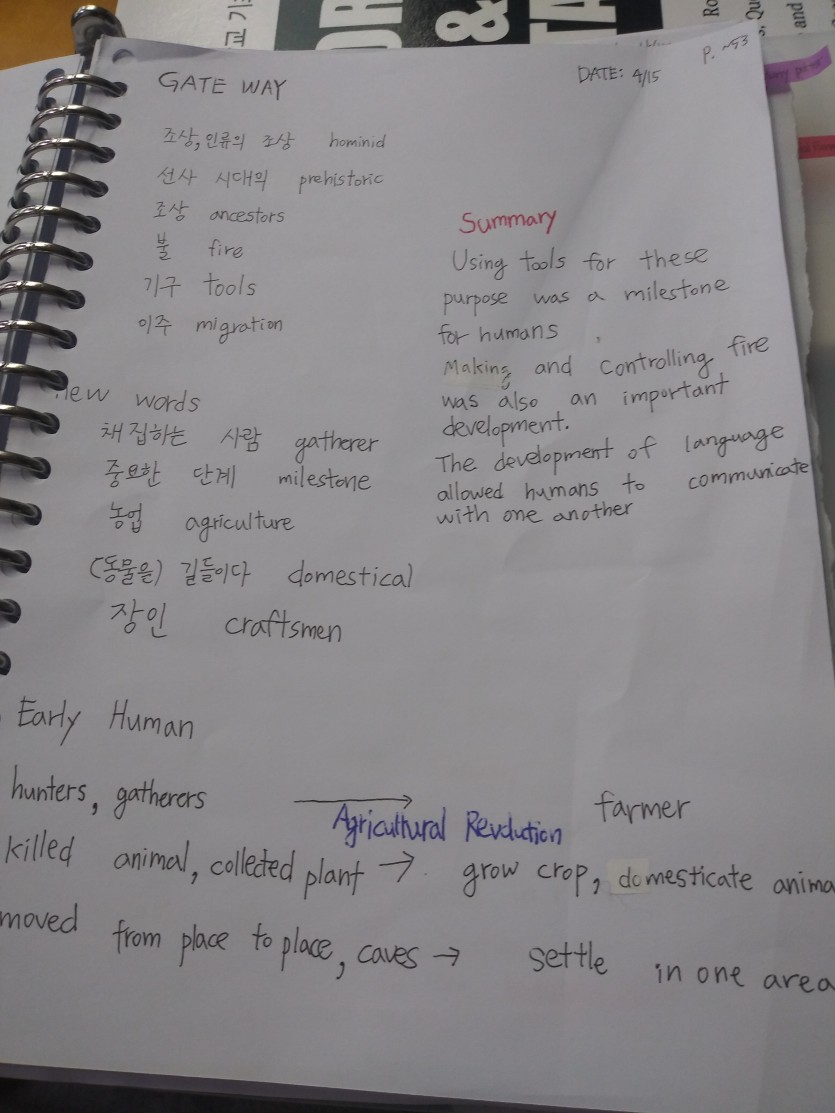 GATE WAY
DATE: 4/15
p. ~53
조상, 인류의 조상 hominid
선사 시대의 prehistoric
조상 ancestors
불 fire
기구 tools
이주 migration
Summary
Using tools for these
purpose was a milestone
for humans
Making and controlling fire
was also an important
development.
The development of language
allowed humans to communicate
with one another
new words
채집하는 사람 gatherer
중요한 단계 milestone
농업 agriculture
(동물을) 길들이다 domestical
장인 craftsmen
Early Human
hunters, gatherers → farmer
Agricultural Revolution
killed animal, collected plant → grow crop, domesticate anima
moved from place to place, caves → settle in one area